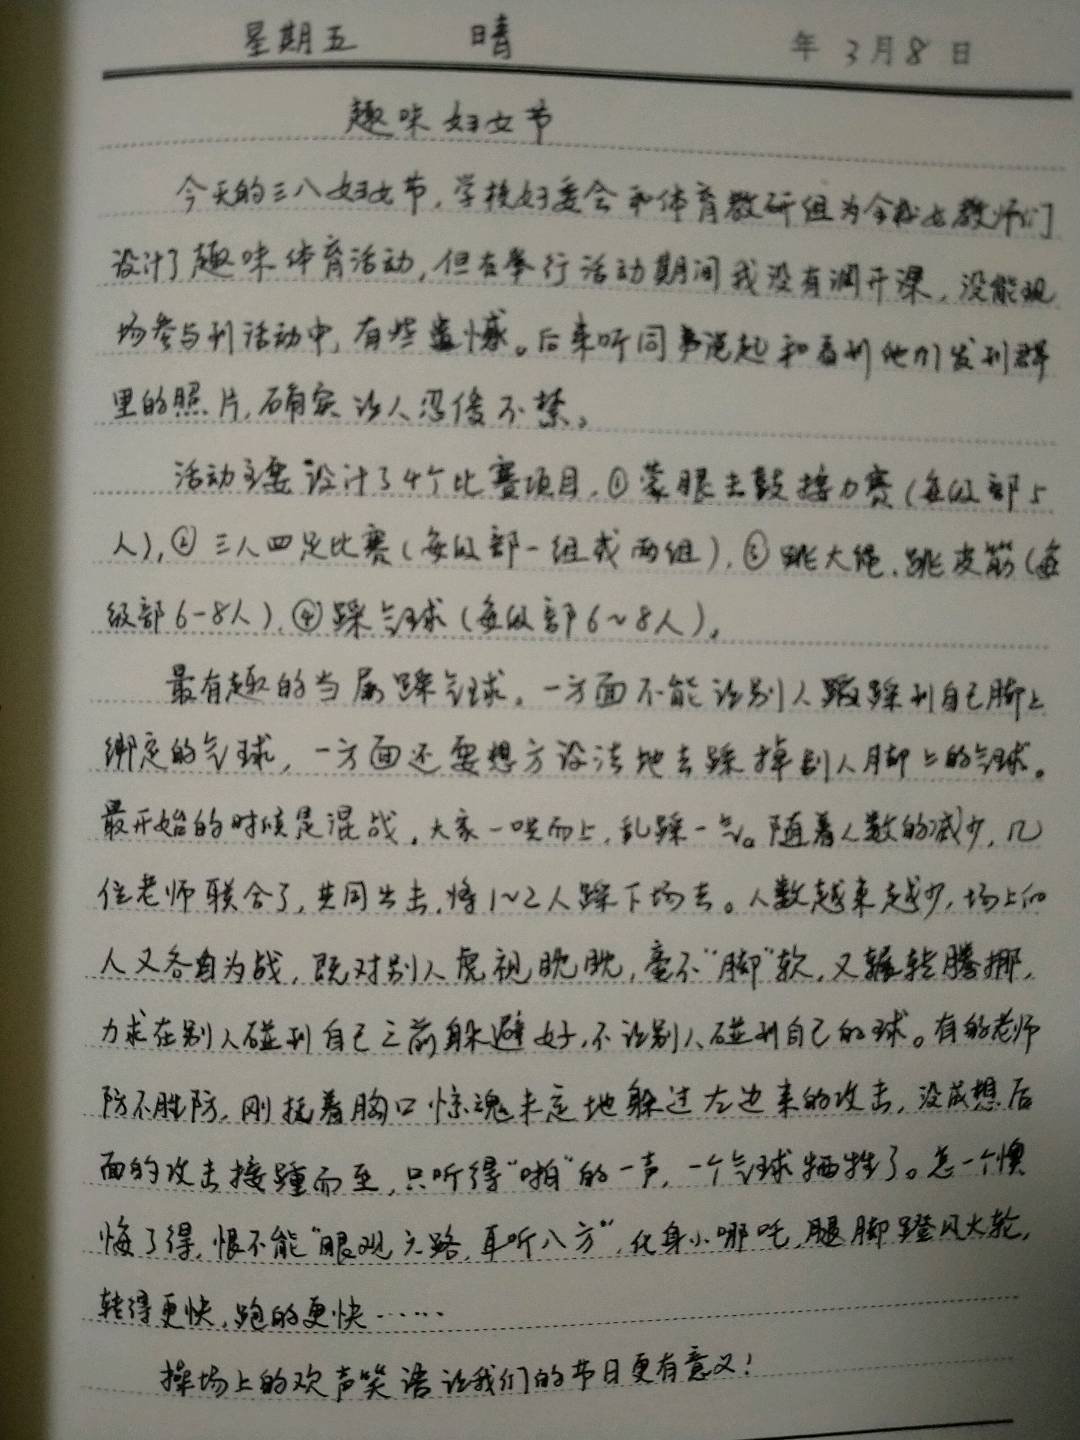 星期五 晴 年 3月8日
趣味妇女节
今天的三八妇女节,学校妇委会和体育教研组为全校女教师们
设计了趣味体育活动,但在举行活动期间我没有调开课,没能现
场参与到活动中,有些遗憾。后来听同事说起和看到他们发到群
里的照片,确实让人忍俊不禁。
活动主要设计了4个比赛项目,①蒙眼击鼓接力赛(每级部5
人),②三人四足比赛(每级部一组或两组),③跳大绳、跳皮筋(每
级部6-8人),④踩气球(每级部6~8人)。
最有趣的当属踩气球。一方面不能让别人踩到自己脚上
绑定的气球,一方面还要想方设法地去踩掉别人脚上的气球。
最开始的时候是混战,大家一哄而上,乱踩一气。随着人数的减少,几
位老师联合了,共同出击,将1~2人踩下场去。人数越来越少,场上的
人又各自为战,既对别人虎视眈眈,毫不“脚”软,又辗转腾挪,
力求在别人碰到自己之前躲避好,不让别人碰到自己的球。有的老师
防不胜防,刚抚着胸口惊魂未定地躲过左边来的攻击,没成想后
面的攻击接踵而至,只听得“啪”的一声,一个气球牺牲了。怎一个懊
悔了得,恨不能“眼观六路,耳听八方”,化身小哪吒,腿脚蹬风火轮,
转得更快,跑的更快……
操场上的欢声笑语让我们的节日更有意义!